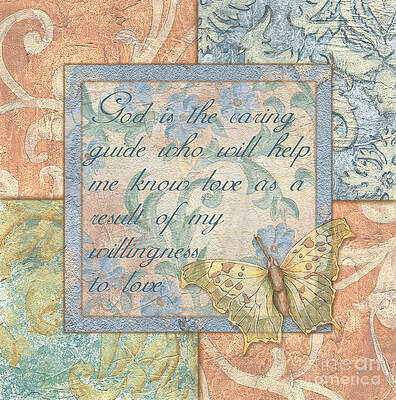 God is the caring
guide who will help
me know love as a
result of my
willingness
to love
fine art
america